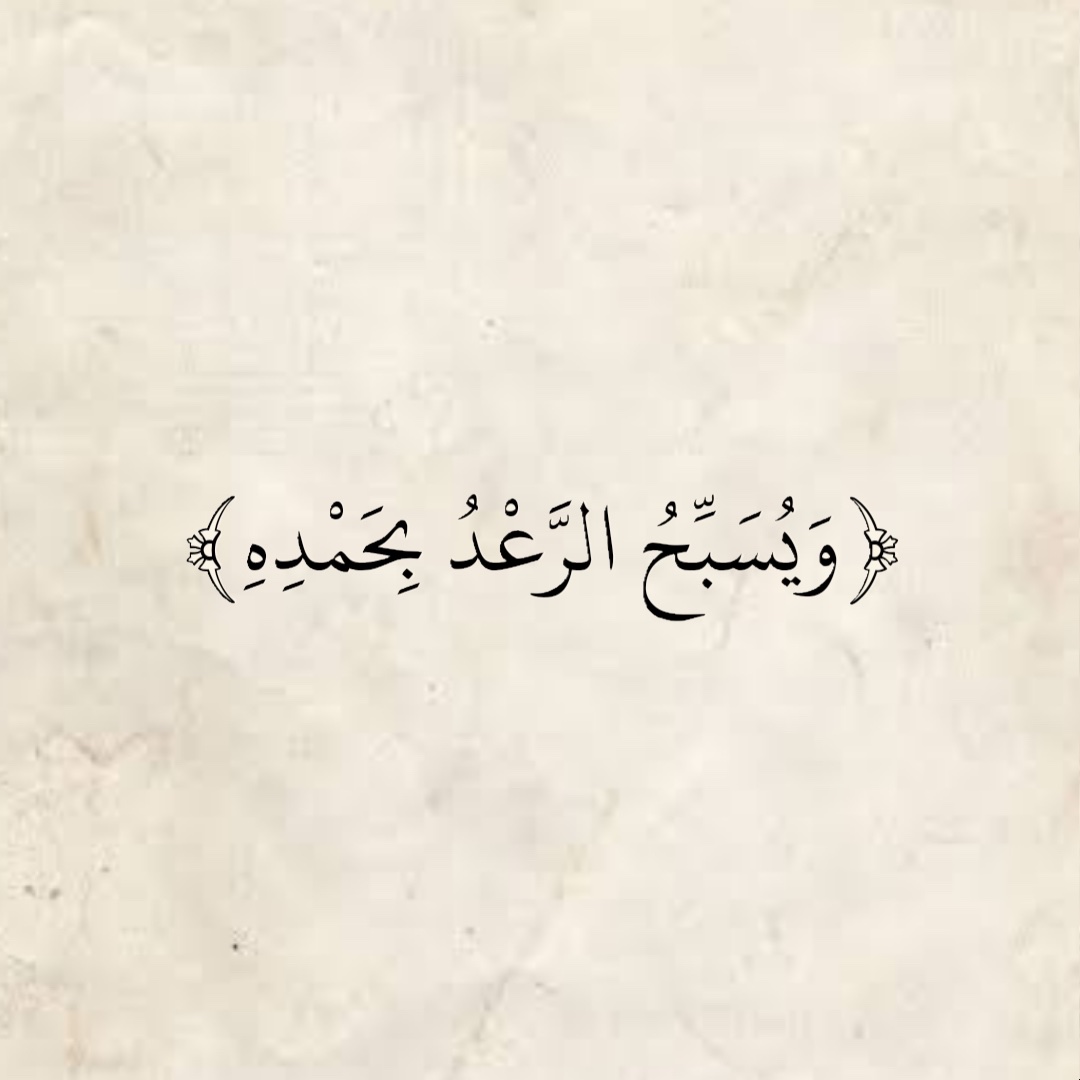 ﴿وَيُسَبِّحُ الرَّعْدُ بِحَمْدِهِ﴾